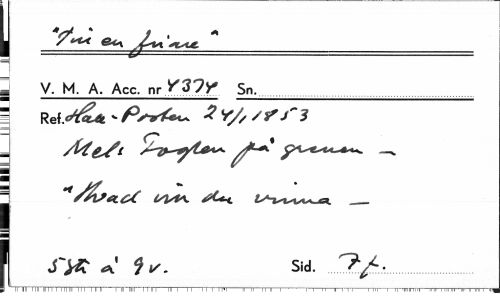 "Tin en friare"
V. M. A. Acc. nr 4374 Sn.
Ref. Hall-Posten 24/1 1853
Mel: Foglen på grenen —
"Hvad vin du vinna —
5 st. à 9 v. Sid. 7 f.